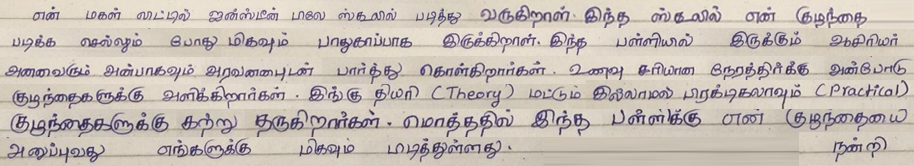 என் மகள் லிட்டில் ஜன்ஸ்டீன் ப்ளே ஸ்கூலில் படித்து வருகிறாள். இந்த ஸ்கூலில் என் குழந்தை
படிக்க செல்லும் போது மிகவும் பாதுகாப்பாக இருக்கிறாள். இந்த பள்ளியில் இருக்கும் ஆசிரியர்
அனைவரும் அன்பாகவும் அரவணைபுடன் பார்த்து கொள்கிறார்கள். உணவு சரியான நேரத்திர்க்கு அன்போடு
குழந்தைகளுக்கு அளிக்கிறார்கள். இங்கு தியரி (Theory) மட்டும் இல்லாமல் பிரக்டிகலாவும் (Practical)
குழந்தைகளுக்கு கற்று தருகிறார்கள். மொத்ததில் இந்த பள்ளிக்கு என் குழந்தையை
அனுப்புவது எங்களுக்கு மிகவும் பிடித்துள்ளது. நன்றி